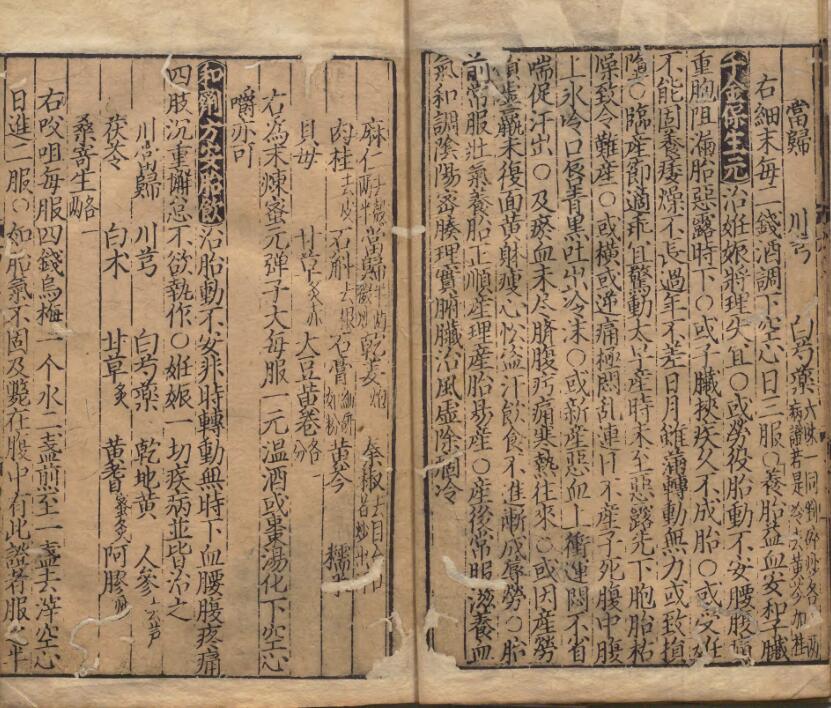 當歸 川芎 白芍藥 六味一同剉碎炒各一兩 病證若是冷去黃芩加桂
右細末每二錢酒調下空心日三服○養胎益血安和子臟
千金保生元 治姙娠將理失宜○或勞役胎動不安腰腹痛
重胞阻漏胎惡露時下○或子臟挾疾久不成胎○或受姙
不能固養痿燥不長過年不差日月雖滿轉動無力或致損
墮○臨產節適乖宜驚動太早產時未至惡露先下胞胎枯
燥致令難產○或橫或逆痛極悶亂連日不產子死腹中腹
上冰冷口唇青黑吐出冷沫○或新產惡血上衝運悶不省
喘促汗出○及瘀血未尽臍腹㽲痛寒熱往來○或因產勞
虛羸未復面黃射瘦心忪盜汗飲食不進漸成蓐勞○胎
前常服壯氣養胎正順產理產胎易產○產後常服滋養血
氣和調陰陽密腠理實腑臟治風虛除痼冷
麻仁 當歸 乾姜炮 秦椒
肉桂去皮 石斛去根 石膏 黃芩 糯米
貝母 甘草炙 大豆黃卷各
右為末煉蜜元彈子大每服一元温酒或棗湯化下空心
嚼亦可
和劑方安胎飲 治胎動不安非時轉動無時下血腰腹疼痛
四肢沉重懈怠不欲執作○姙娠一切疾病並皆治之
川當歸 川芎 白芍藥 乾地黃 人參去芦
茯苓 白朮 甘草炙 黃耆蜜炙 阿膠
桑寄生各一兩
右㕮咀每服四錢烏梅一个水二盞煎至一盞去滓空心
日進二服○如胎氣不固及斃在腹中有此證者服之半